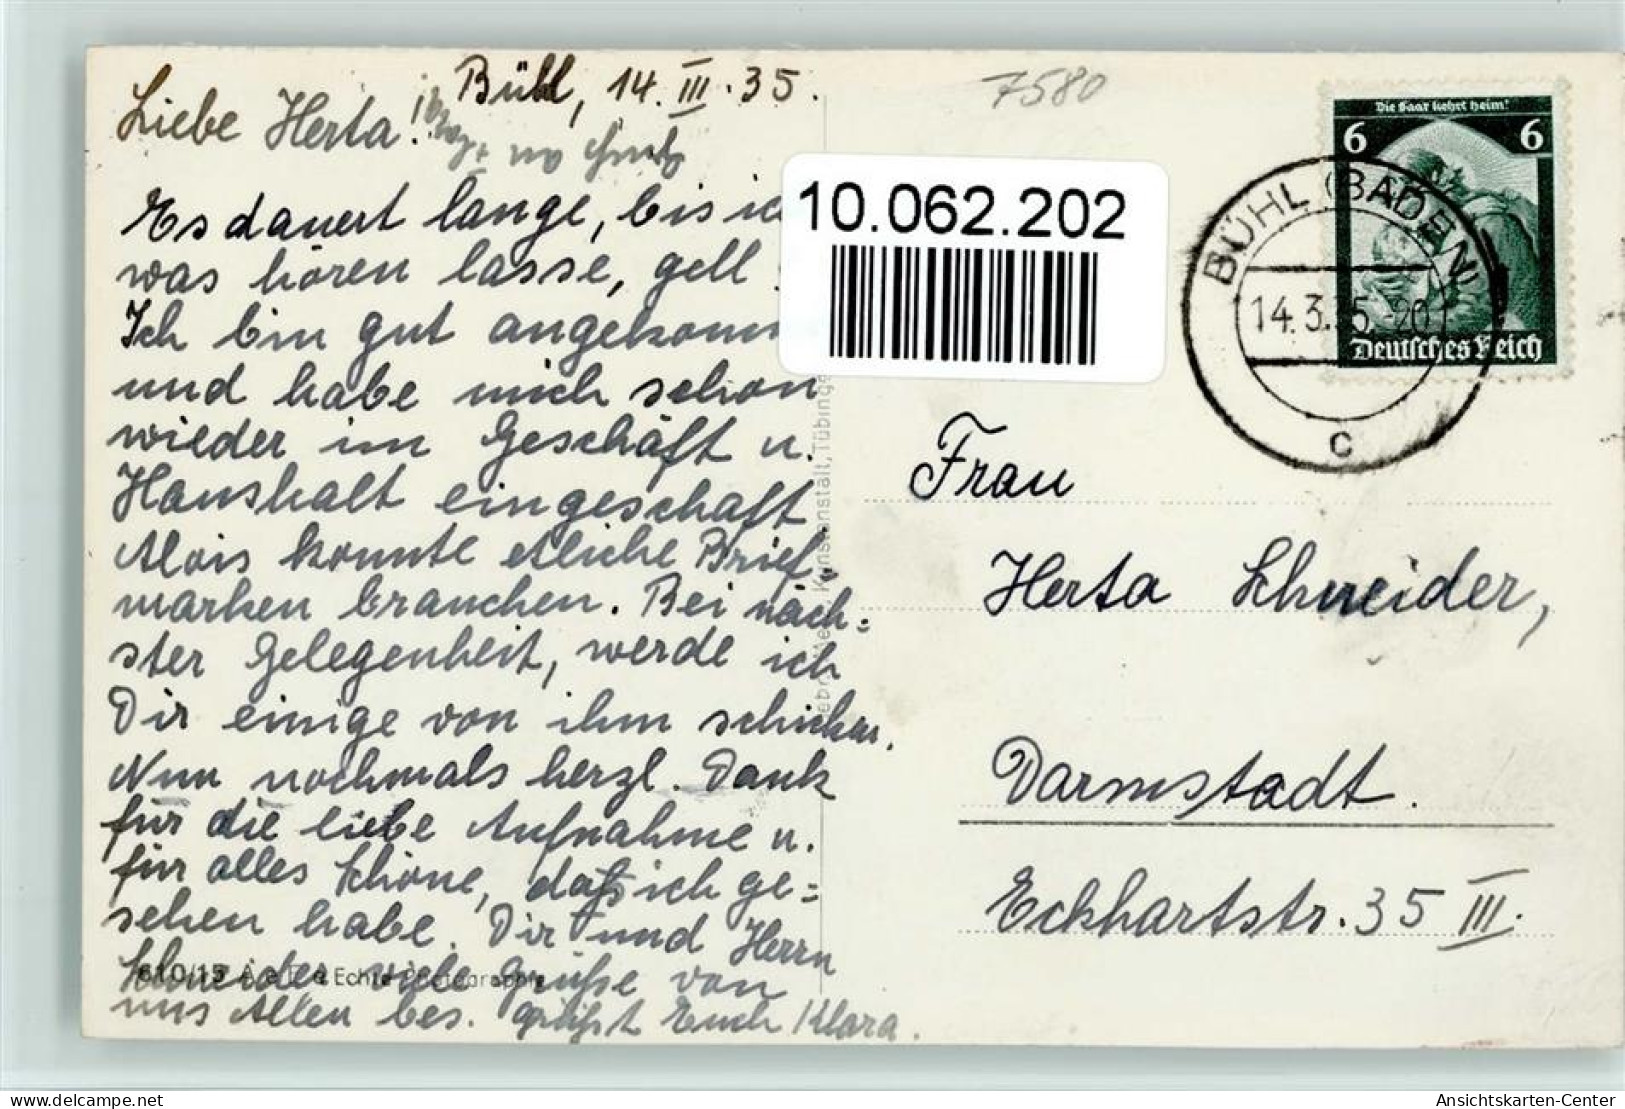 Bühl, 14. III. 35.
Liebe Herta!
Es dauert lange, bis ic
was hören lasse, gell
Ich bin gut angekomm
und habe mich schon
wieder im Geschäft u.
Haushalt eingeschafft.
Alois konnte etliche Brief-
marken brauchen. Bei näch=
ster Gelegenheit, werde ich
Dir einige von ihm schicken.
Nun nochmals herzl. Dank
für die liebe Aufnahme u.
für alles Schöne, daß ich ge=
sehen habe. Dir und Herrn
Schneider viele Grüße von
uns Allen bes. grüßt Euch Klara.
610/15 Echte Photographie
Kunstanstalt, Tübinge
7580
10.062.202
Die Saar kehrt heim!
6 6
Deutsches Reich
BÜHL (BADEN)
14.3.35.-20
c
Frau
Herta Schneider,
Darmstadt.
Eckhartstr. 35 III.
delcampe.net
Ansichtskarten-Center